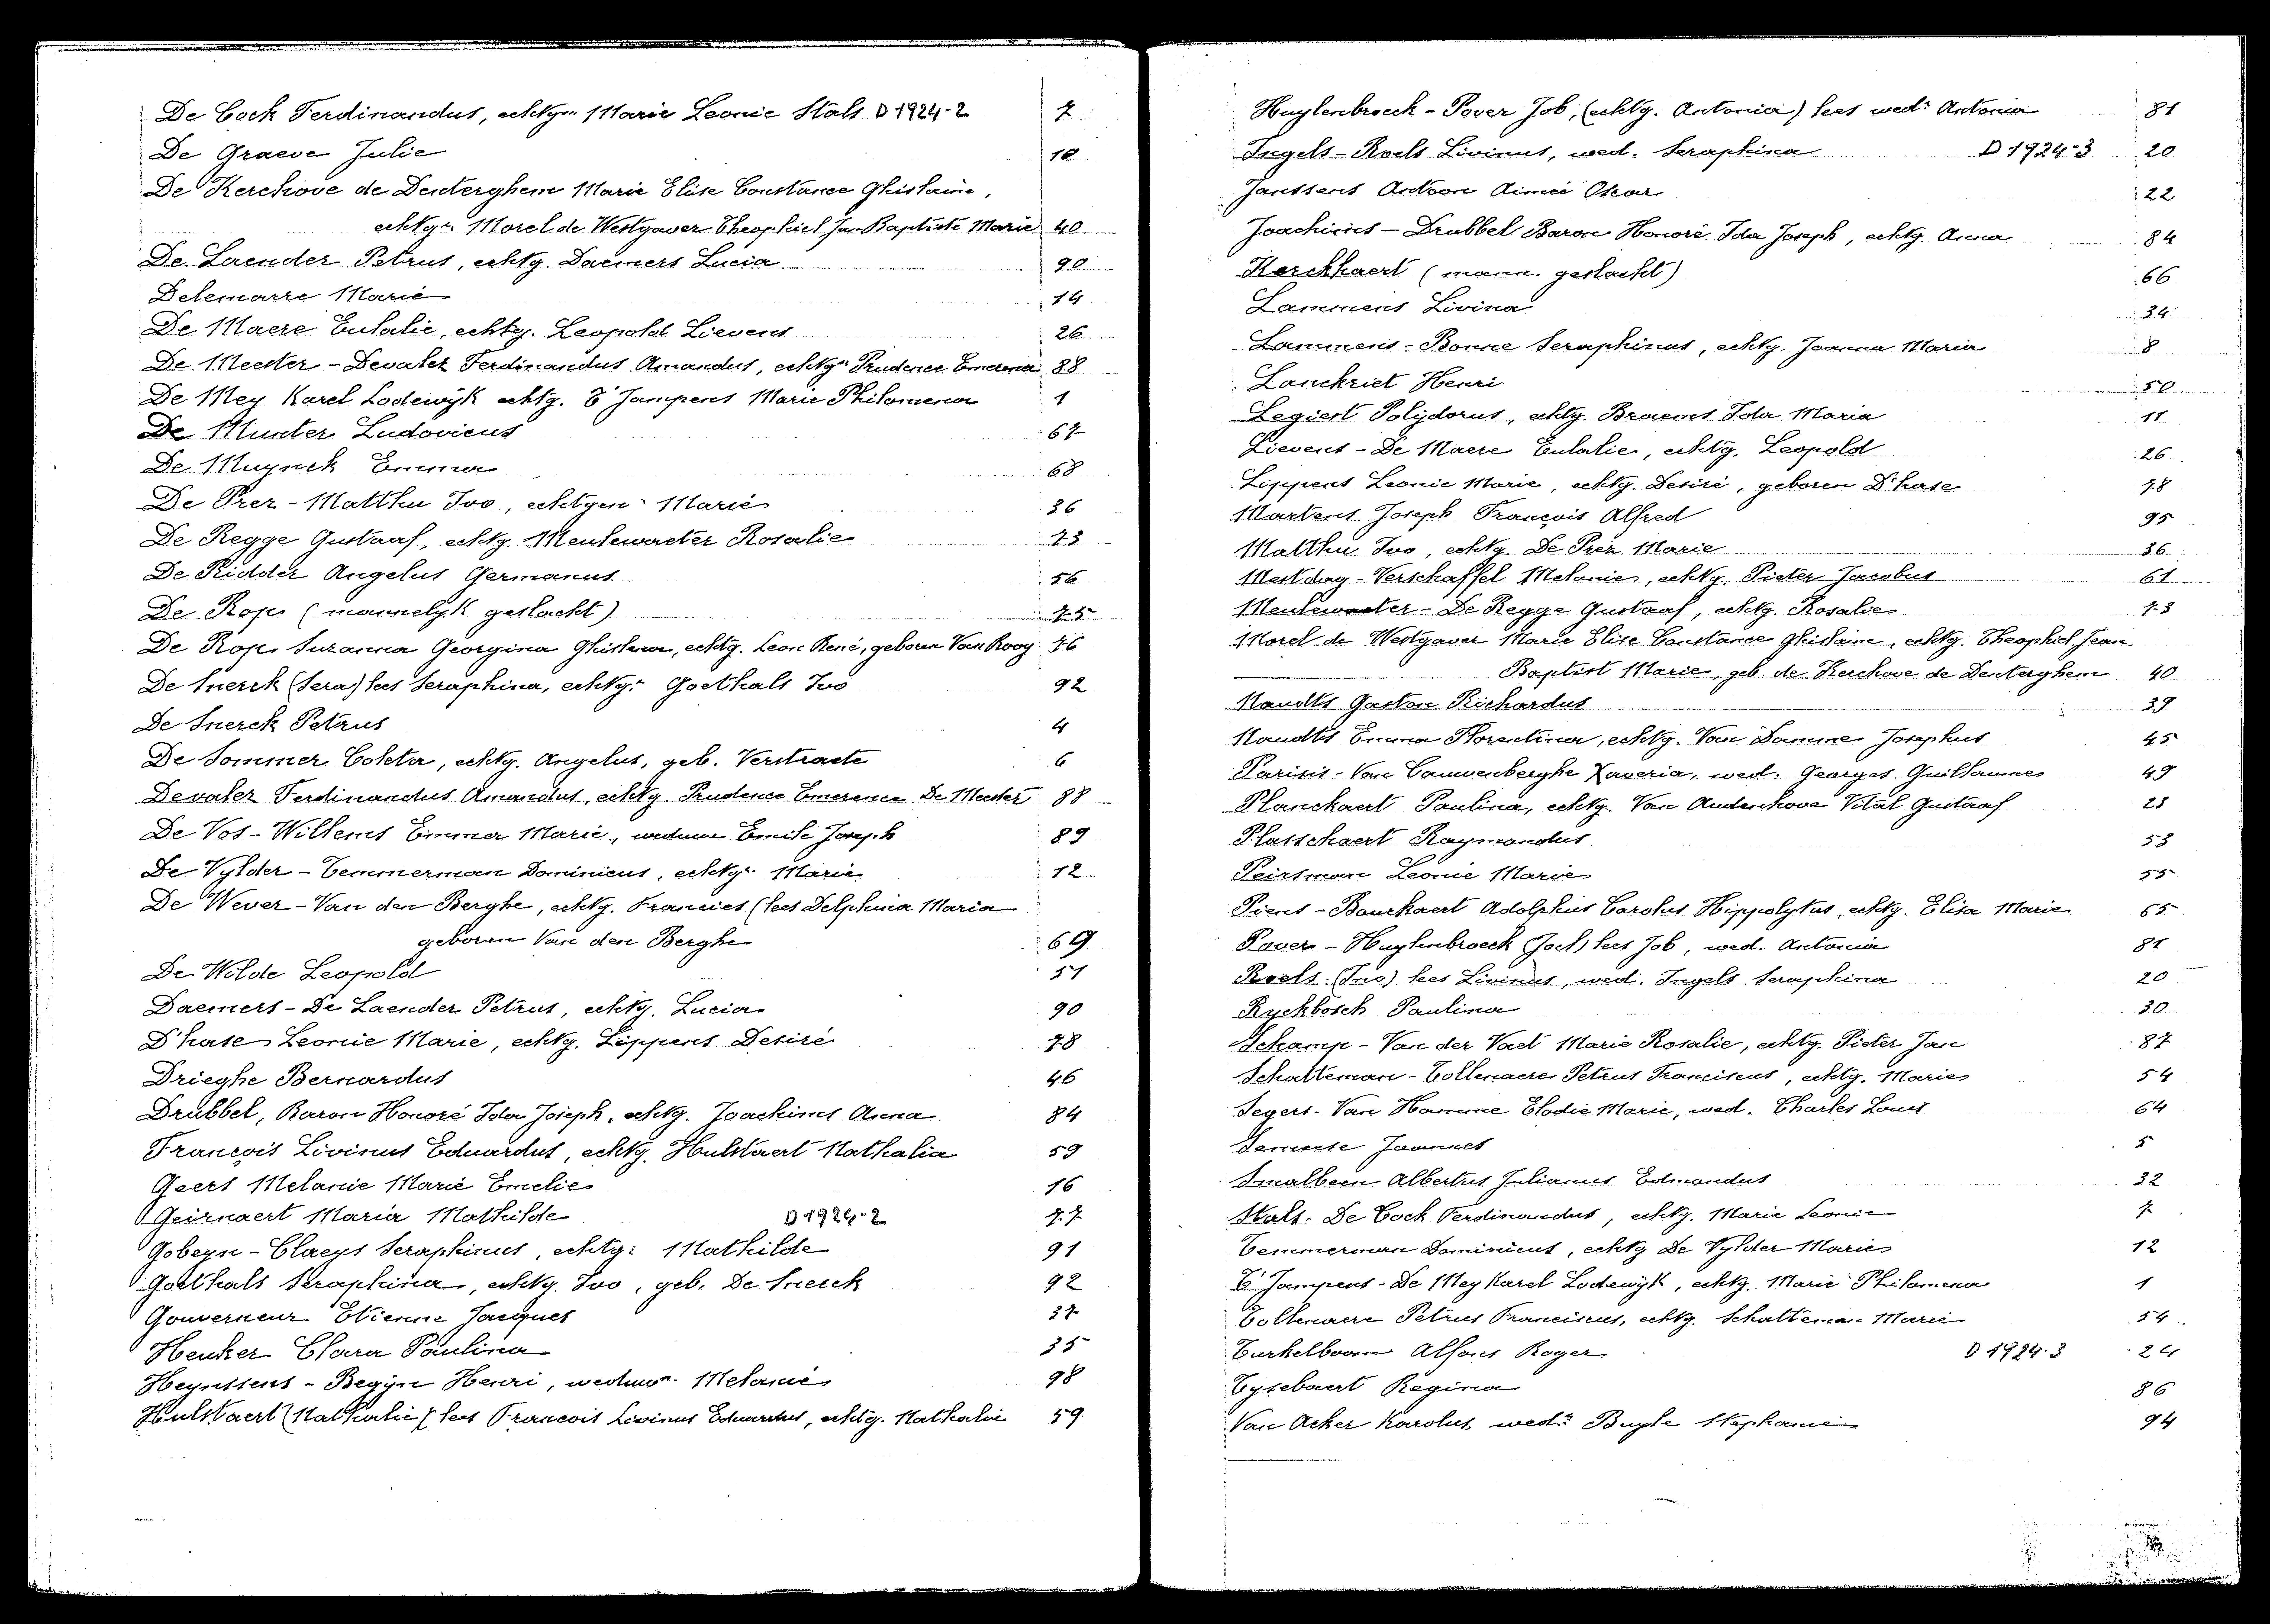 De Cock Ferdinandus, echtgn. Marie Leonie Stals D 1924-2 7
De Graeve Julie 10
De Kerchove de Denterghem Marie Elise Constance Ghislaine,
echtgn. Morel de Westgaver Theophiel Jan Baptiste Marie 40
De Laender Petrus, echtg. Daemers Lucia 90
Delemarre Marie 14
De Maere Eulalie, echtg. Leopold Lievens 26
De Meester - Devaler Ferdinandus Amandus, echtgn. Prudence Emerence 88
De Mey Karel Lodewijk echtg. T'Jampens Marie Philomena 1
De Munter Ludovicus 67
De Muynck Emma 68
De Prez - Matthu Ivo, echtgen. Marie 36
De Regge Gustaaf, echtg. Meulewaeter Rosalie 73
De Ridder Angelus Germanus 56
De Rop (mannelijk geslacht) 75
De Rop Suzanna Georgina Ghislena, echtg. Leon René, geboren Van Rooy 76
De Snerck (Sera) lees Seraphina, echtg. Goethals Ivo 92
De Snerck Petrus 4
De Sommer Coleta, echtg. Angelus, geb. Verstraete 6
Devaler Ferdinandus Amandus, echtg. Prudence Emerence De Meester 88
De Vos - Willems Emma Marie, weduwe Emile Joseph 89
De Vylder - Temmerman Dominicus, echtg. Marie 12
De Wever - Van den Berghe, echtg. Francies (lees Delphina Maria
geboren Van den Berghe 69
De Wilde Leopold 51
Daemers - De Laender Petrus, echtg. Lucia 90
D'hase Leonie Marie, echtg. Lippens Desiré 78
Drieghe Bernardus 46
Drubbel, Baron Honoré Ida Joseph, echtg. Joachims Anna 84
François Livinus Eduardus, echtg. Hulstaert Nathalia 59
Geers Melanie Marie Emelie 16
Geirnaert Maria Mathilde D 1924-2 77
Gobeyn - Claeys Seraphinus, echtg: Mathilde 91
Goethals Seraphina, echtg. Ivo, geb. De Snerck 92
Gouverneur Etienne Jacques 37
Heuker Clara Paulina 35
Heynssens - Begijn Henri, weduwn. Melanie 98
Hulstaert (Nathalie) lees Francois Livinus Eduardus, echtg. Nathalie 59
Huylenbroeck - Pover Job, (echtg. Antonia) lees wed: Antonia 81
Ingels - Roels Livinus, wed. Seraphina D 1924-3 20
Janssens Antoon Aimée Oscar 22
Joachims - Drubbel Baron Honoré Ida Joseph, echtg. Anna 84
Kerckhaert (mann. geslacht) 66
Lammens Livina 34
Lammens - Bonne Seraphinus, echtg. Joanna Maria 8
Lanckriet Henri 50
Legiest Polijdorus, echtg. Braems Ida Maria 11
Lievens - De Maere Eulalie, echtg. Leopold 26
Lippens Leonie Marie, echtg. Desiré, geboren D'hase 78
Martens Joseph François Alfred 95
Matthu Ivo, echtg. De Prez Marie 36
Mestdag - Verschaffel Melanie, echtg. Pieter Jacobus 61
Meulewaeter - De Regge Gustaaf, echtg. Rosalie 73
Morel de Westgaver Marie Elise Constance Ghislaine, echtg. Theophiel, Jean
Baptist Marie, geb. de Kerchove de Denterghem 40
Naudts Gaston Richardus 39
Naudts Emma Florentina, echtg. Van Damme Josephus 45
Parisis - Van Cauwenberghe Xaveria, wed. Georges Guillaumes 49
Planckaert Paulina, echtg. Van Audenhove Vital Gustaaf 23
Plasschaert Raymondus 53
Peirsman Leonie Marie 55
Piens - Bauckaert Adolphus Carolus Hippolytus, echtg. Elisa Marie 65
Pover - Huylenbroeck (Joel) lees Job, wed. Antonia 81
Roels (Ivo) lees Livinus, wed. Ingels Seraphina 20
Ryckbosch Paulina 30
Schamp - Van der Vaet Marie Rosalie, echtg. Pieter Jan 87
Schatteman - Tollenaere Petrus Franciscus, echtg. Marie 54
Segers - Van Hamme Elodie Marie, wed. Charles Louis 64
Joannes 5
Smalbeen Albertus Julianus Edmondus 32
Stals - De Cock Ferdinandus, echtg. Marie Leonie 7
Temmerman Dominicus, echtg De Vylder Marie 12
T'Jampens - De Mey Karel Lodewijk, echtg. Marie Philomena 1
Tollenaere Petrus Franciscus, echtg. Schatteman Marie 54
Turkelboom Alfons Roger D 1924-3 24
Tysebaert Regina 86
Van Acker Karolus, wed: Buyle Stephanie 94